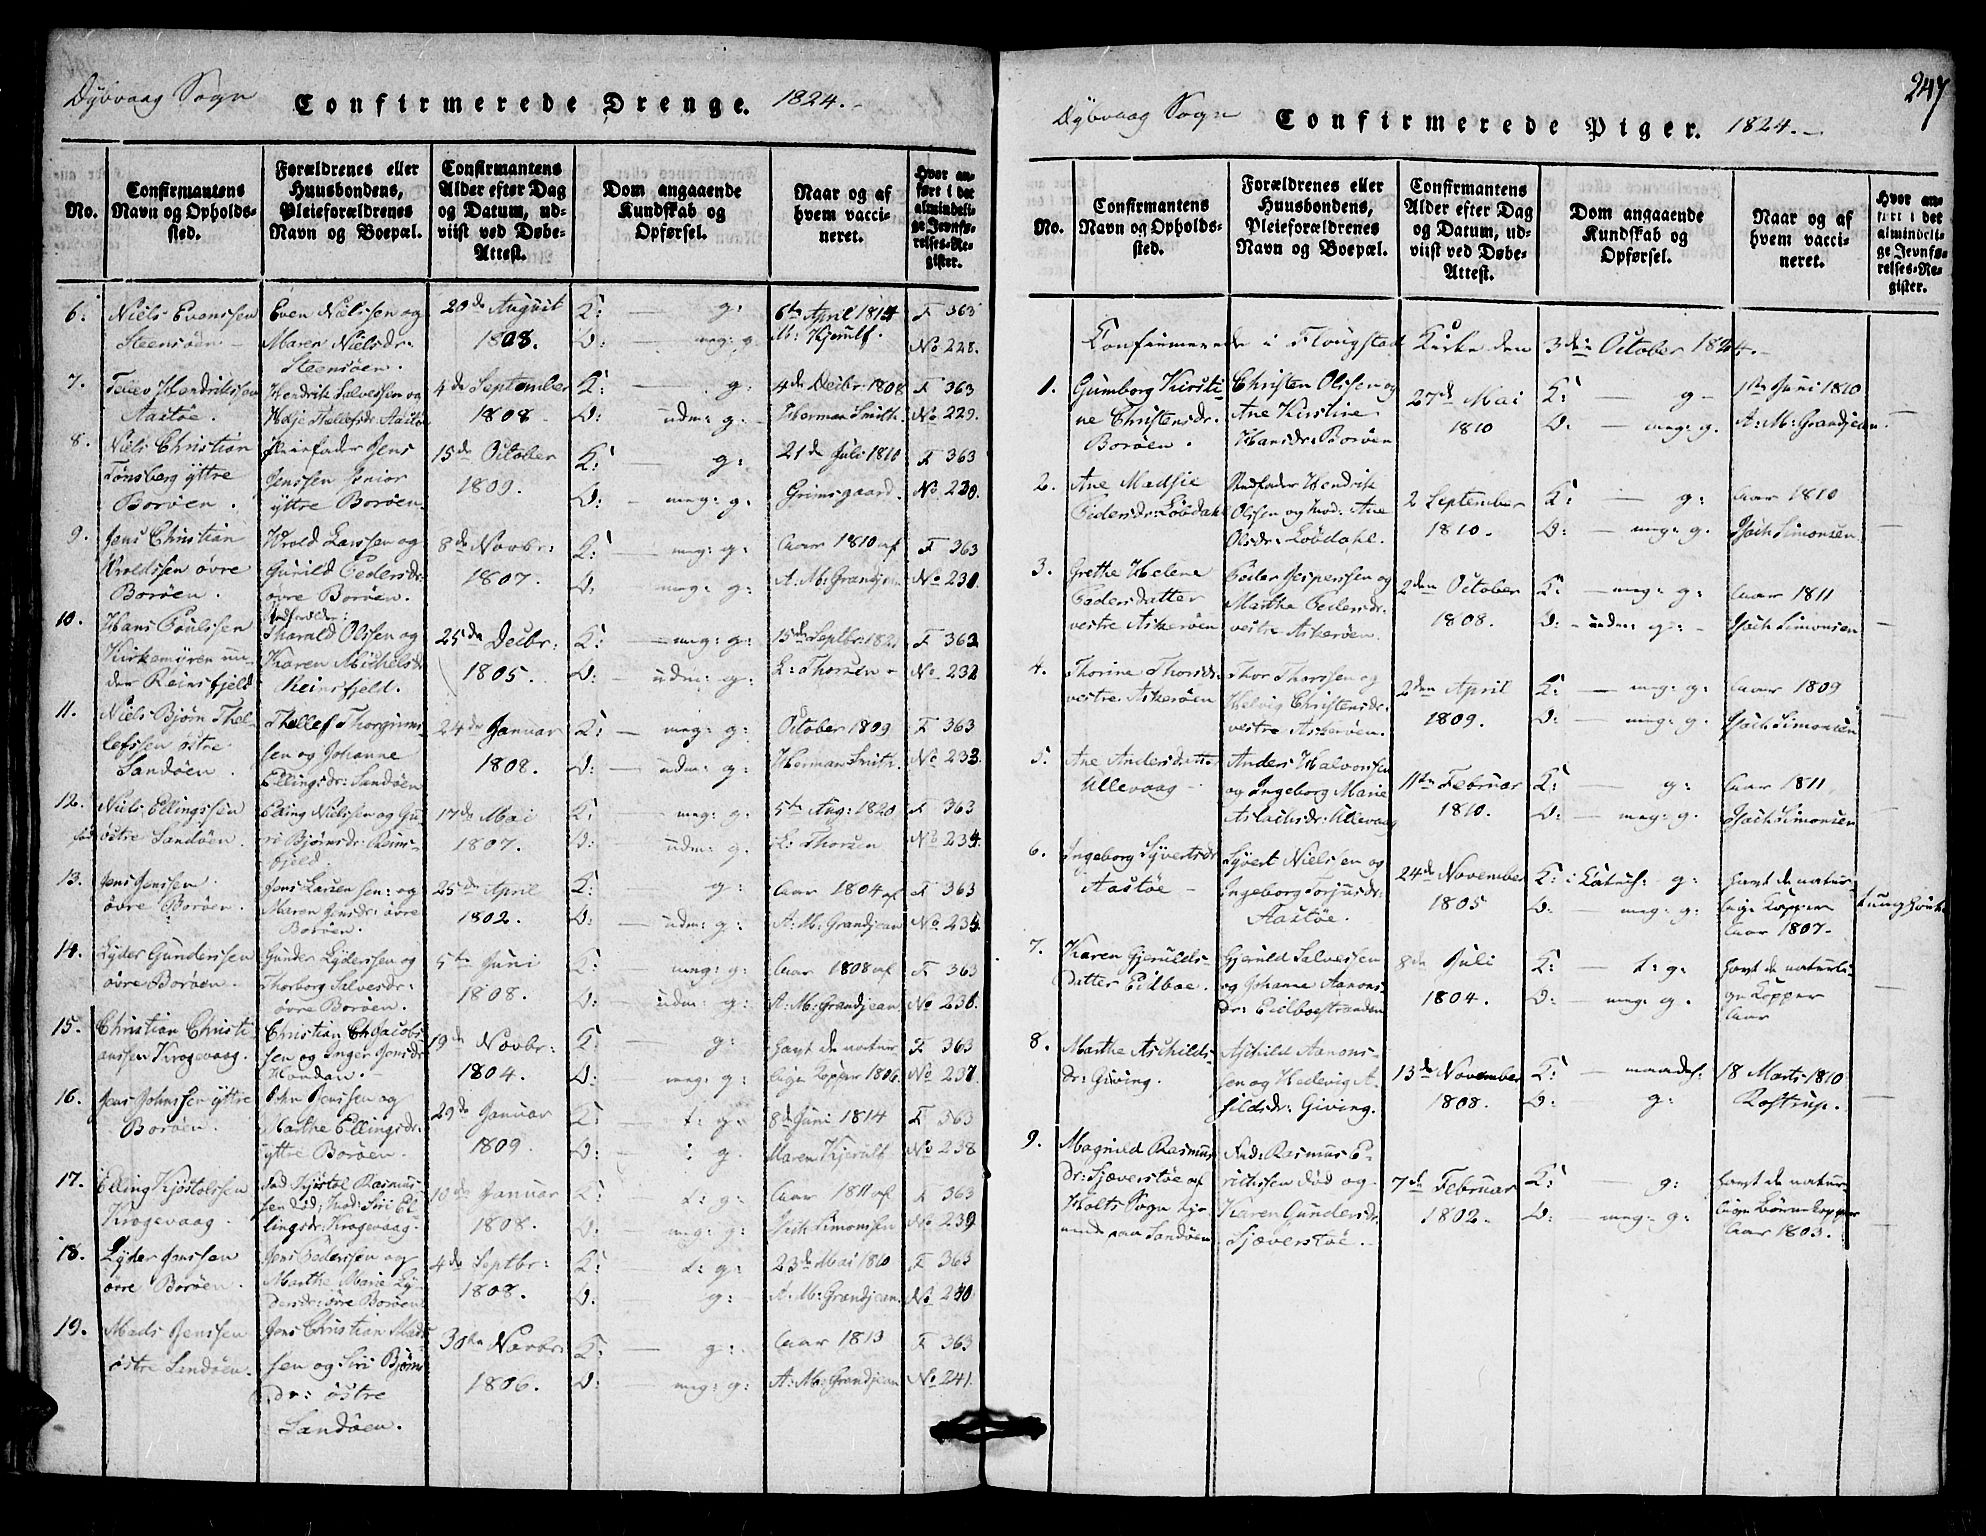 Dybvaag Sogn Confirmerede Drenge. 1824.-
No.
Confirmantens
Navn og Opholds-
sted.
Forældrenes eller
Huusbondens,
Pleieforældrenes
Navn og Boepæl.
Confirmantens
Alder efter Dag
og Datum, ud-
viist ved Døbe-
Attest.
Dom angaaende
Kundskab og
Opførsel.
Naar og af
hvem vacci-
neret.
Hvor an-
ført i det
almindeli-
ge Jevnfø-
relses-Re-
gister.
6. Niels Evenssen
Steensöen -
Even Nielssen og
Maren Nielsdr:
Steensöen.
20de August
1808.
K: — g:
O: — meg: g.
6te April 1814
M: Kjerulf
F 363
No 228.
7. Tellev Hendrikssen
Aastöe.
Hendrik Salvessen og
Thellefsdr: Aastöe
4de September
1808.
K: — g:
O: udm: g.
4de Decbr: 1808
Herman Smith.
F 363
No 229.
8. Niels Christian
Tönsberg yttre
Boröen.
Jens
Jenssen Senior
yttre Boröen.
15de October
1809.
K: — g:
O: - meg: g.
21de Juli 1810
Grimsgaard.
F 363
No 230.
9. Jens Christian
Wroldssen övre
Boröen.
Wrold Larssen og
Gunild Pedersdr:
övre Boröen.
8de Novbr:
1807.
K: — meg: g:
O: meg: g:
Aar 1810 af
A: M: Grandjean
F 363
No 231.
10. Hans Poulssen
Kirkemören un-
der Reinsfjeld
Tharald Olssen og
Karen Michelsdr
Reinsfjeld.
25de Decbr:
1805.
K: — meg: g:
O: - udm: g:
15de Septbr: 1821
L: Thorsen -
F 363
No 232
11. Niels Björn Thel-
lefssen östre
Sandöen.
Thellef Thorgrims-
sen og Johanne
Ellingsdr: Sandöen
24de Januar
1808.
K: — meg: g:
O: — udm: g:
October 1809
Herman Smith.
F 363
No 233.
12. Niels Ellingssen
östre Sandöen.
Elling Nielssen og Gu-
ri Björnsdr: Reins-
fjeld.
17de Mai
1807.
K: — meg: g:
O: udm: g:
5te Aug: 1820
L: Thorsen
F 363
No 234.
13. Jens Jenssen
övre Boröen.
Jens Larssen og
Maren Jensdr: övre
Boröen.
25de April
1802.
K: — g:
O: — udm: g:
Aar 1804 af
A: M: Grandjean
F 363
No 235.
14. Lyder Gunderssen
övre Boröen.
Gunder Lyderssen og
Thorborg Salvesdr:
övre Boröen.
5te Juni
1808.
K: meg: g:
O: — udm: g:
Aar 1808 af
A: M: Grandjean
F 363
No 236.
15. Christian Christi-
anssen Krogevaag.
Christian Ch: Jacobs-
sen og Inger Jensdr
19de Novbr:
1804.
K: — g:
O: — meg: g:
havt de natur
lige Kopper 1806.
F 363
No 237.
16. Jens Johnssen yttre
Boröen.
John Jenssen og
Marthe Ellingsdr:
yttre Boröen.
29de Januar
1809.
K: — t: g:
O: — g:
8de Juni 1814
Maren Kjerulf
F 363
No 238
17. Elling Kjöstolssen
Krogevaag.
Kjöstol Rasmus-
sen död, Mod: Siri El-
lingsdr: Krogevaag.
10de Januar
1808.
K: — t: g:
O: — meg: g:
Aar 1811 af
Simonsen
F 363
No 239
18. Lyder Jenssen
övre Boröen.
Jens Pederssen og
Marthe Marie Ly-
dersdr: övre Boröen
4de Septbr:
1808.
K: — t: g:
O: — g:
23de Mai 1810
A: M: Grandjean.
F 363
No 240
19. Mads Jenssen
östre Sandöen.
Jens Christian Mads-
sen og Siri Björns
dr: östre
Sandöen.
30te Novbr:
1806.
K: — g:
O: meg: g:
Aar 1813
A: M: Grandjean
F 363
No 241.
247
Dybvaag Sogn Confirmerede Piger. 1824.-
No.
Confirmantens
Navn og Opholds-
sted.
Forældrenes eller
Huusbondens,
Pleieforældrenes
Navn og Boepæl.
Confirmantens
Alder efter Dag
og Datum, ud-
viist ved Døbe-
Attest.
Dom angaaende
Kundskab og
Opførsel.
Naar og af
hvem vacci-
neret.
Hvor an-
ført i det
almindeli-
ge Jevnfø-
relses-Re-
gister.
Confirmerede i Flougstad Kirke den 3die October 1824.-
1. Gumborg Kirsti-
ne Christensdr.
Boröen.
Christen Olssen og
Ane Kirstine
Hansdr: Boröen
27de Mai
1810
K: — g-
O: — meg: g.
1ste Juni 1810
A: M: Grandjean.
—
2. Ane Madsie
Pedersdr: Löbdahl
Stedfader Hendrik
Olssen og Mod: Ane
Olsdr: Löbdahl.
2 September
1810.
K: — g:
O: meg: g.
Aar 1810
Isach Simonsen
—
3. Grethe Helene
Pedersdatter
vestre Askeröen
Peder Jesperssen og
Marthe Pedersdr:
vestre Askeröen.
2den October
1808.
K: — meg: g:
O: - udm: g: -
Aar 1811
Isach Simonsen
—
4. Thorine Thorsdr:
vestre Askeröen
Thor Thorssen og
Helvig Christensdr:
vestre Askeröen.
2den April
1809.
K: — meg: g:
O: — meg: g:
Aar 1809
Isach Simonsen
—
5. Ane Andersdatter
Ullevaag -
Anders Halvorssen
og Ingeborg Marie
Aslachsdr: Ullevaag
11te Februar
1810.
K: g:
O: — meg: g.
Aar 1811,
Isach Simonsen
—
6. Ingeborg Syvertsdr
Aastöe -
Syvert Nielssen og
Ingeborg Torjusdr:
Aastöe.
24de November
1805
K: i g:
O: — meg: g:
havt de natur-
lige Kopper
Aar 1807.
tunghört
7. Karen Gjerulds-
datter Eidboe.
Gjeruld Salvessen
og Johanne Aanons-
dr: Eidboestranden
8de Juli
1804.
K: — t: g:
O: meg: g.
havt de naturli-
ge Kopper
Aar
—
8. Marthe Aschilds-
dr: Giving.
Aschild Aanons-
sen og Hedevig A-
sildsdr: Giving.
13de November
1808.
K: — maadel.
O: g:
18 Marts 1810
Rostrup.
—
9. Magnild Rasmus-
dr: Sjæverstöe af
Holts Sogn
paa Sandöen
Fad: Rasmus E-
richssen död og
Karen Gundersdr
Sjæverstöe.-
7de Februar
1802.
K: — g:
O: — meg: g:
havt de natur-
lige Börnekopper
Aar 1803.